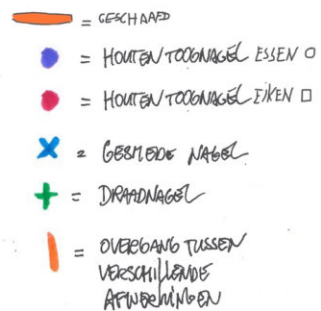 = GESCHAAFD
= HOUTEN TOOGNAGEL ESSEN O
= HOUTEN TOOGNAGEL EIKEN □
= GESMEDE NAGEL
= DRAADNAGEL
= OVERGANG TUSSEN
VERSCHILLENDE
AFWERKINGEN